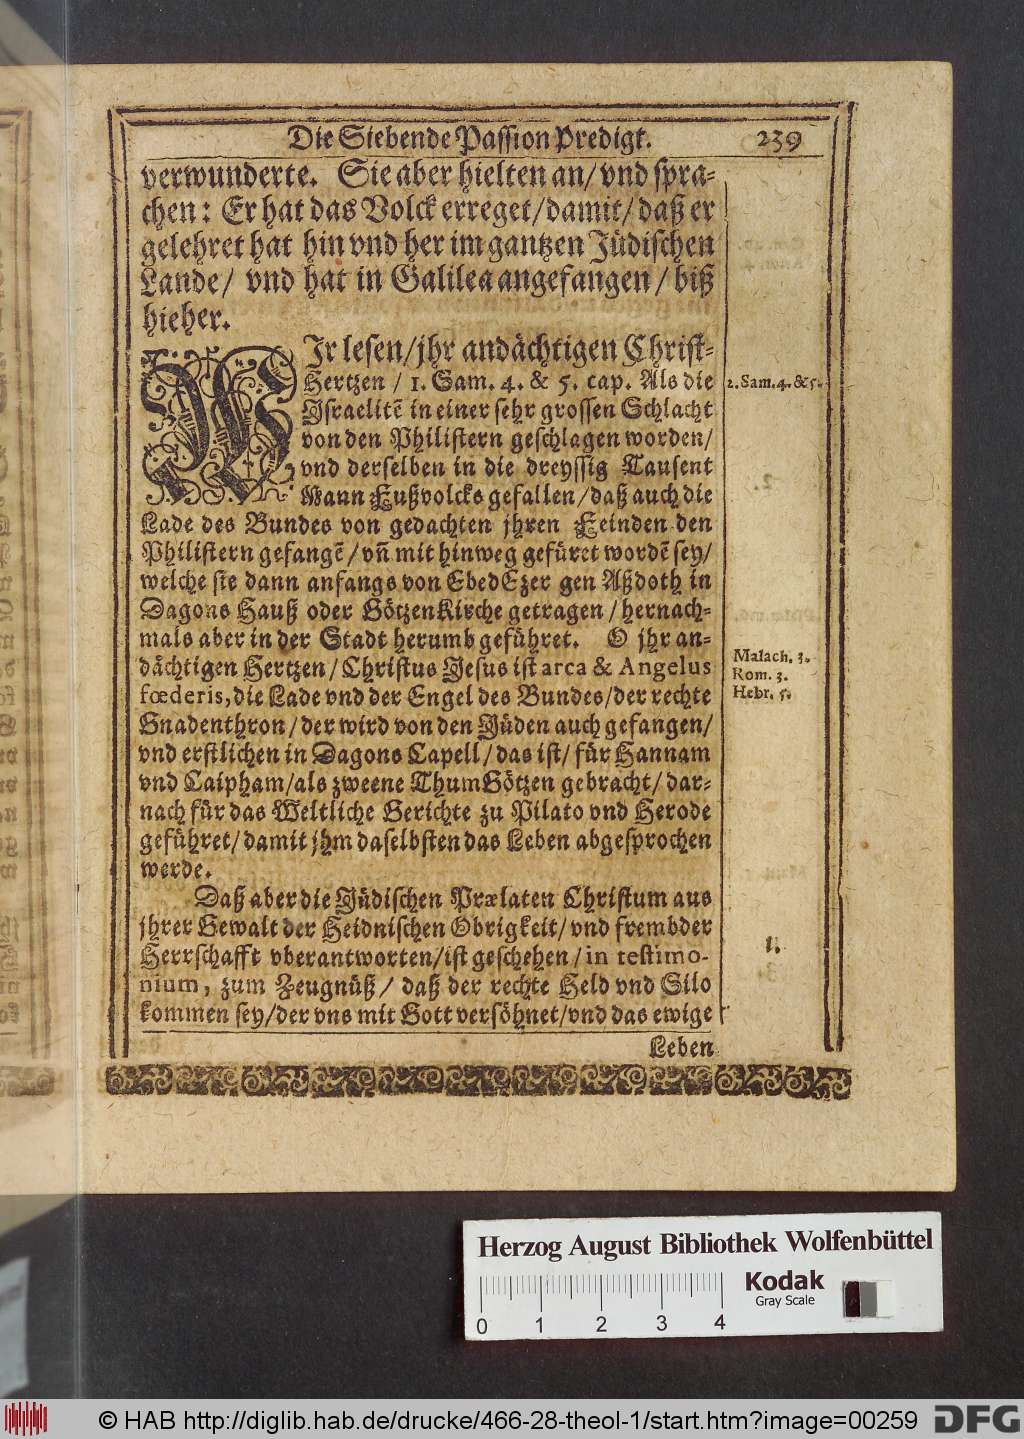 Die Siebende Passion Predigt. 239
verwunderte. Sie aber hielten an/ vnd spra-
chen: Er hat das Volck erreget/ damit/ daß er
gelehret hat hin vnd her im gantzen Jüdischen
Lande/ vnd hat in Galilea angefangen/ biß
hieher.
WIr lesen/ jhr andächtigen Christ-
Hertzen/ 1. Sam. 4. & 5. cap. Als die
Israelitē in einer sehr grossen Schlacht
von den Philistern geschlagen worden/
vnd derselben in die dreyssig Tausent
Mann Fußvolcks gefallen/ daß auch die
Lade des Bundes von gedachten jhren Feinden den
Philistern gefangē/ vñ mit hinweg gefüret wordē sey/
welche sie dann anfangs von EbedEzer gen Aßdoth in
Dagons Hauß oder GötzenKirche getragen/ hernach-
mals aber in der Stadt herumb geführet. O jhr an-
dächtigen Hertzen/ Christus Jesus ist arca & Angelus
fœderis, die Lade vnd der Engel des Bundes/ der rechte
Gnadenthron/ der wird von den Jüden auch gefangen/
vnd erstlichen in Dagons Capell/ das ist/ für Hannam
vnd Caipham/ als zweene ThumGötzen gebracht/ dar-
nach für das Weltliche Gerichte zu Pilato vnd Herode
geführet/ damit jhm daselbsten das Leben abgesprochen
werde.
Daß aber die Jüdischen Prælaten Christum aus
jhrer Gewalt der Heidnischen Obrigkeit/ vnd frembder
Herrschafft vberantworten/ ist geschehen/ in testimo-
nium, zum Zeugnüß/ daß der rechte Held vnd Silo
kommen sey/ der vns mit Gott versöhnet/ vnd das ewige
Leben
1. Sam. 4. & 5.
Malach. 3.
Rom. 3.
Hebr. 5.
1.
Herzog August Bibliothek Wolfenbüttel
Kodak
Gray Scale
0 1 2 3 4
© HAB http://diglib.hab.de/drucke/466-28-theol-1/start.htm?image=00259
DFG